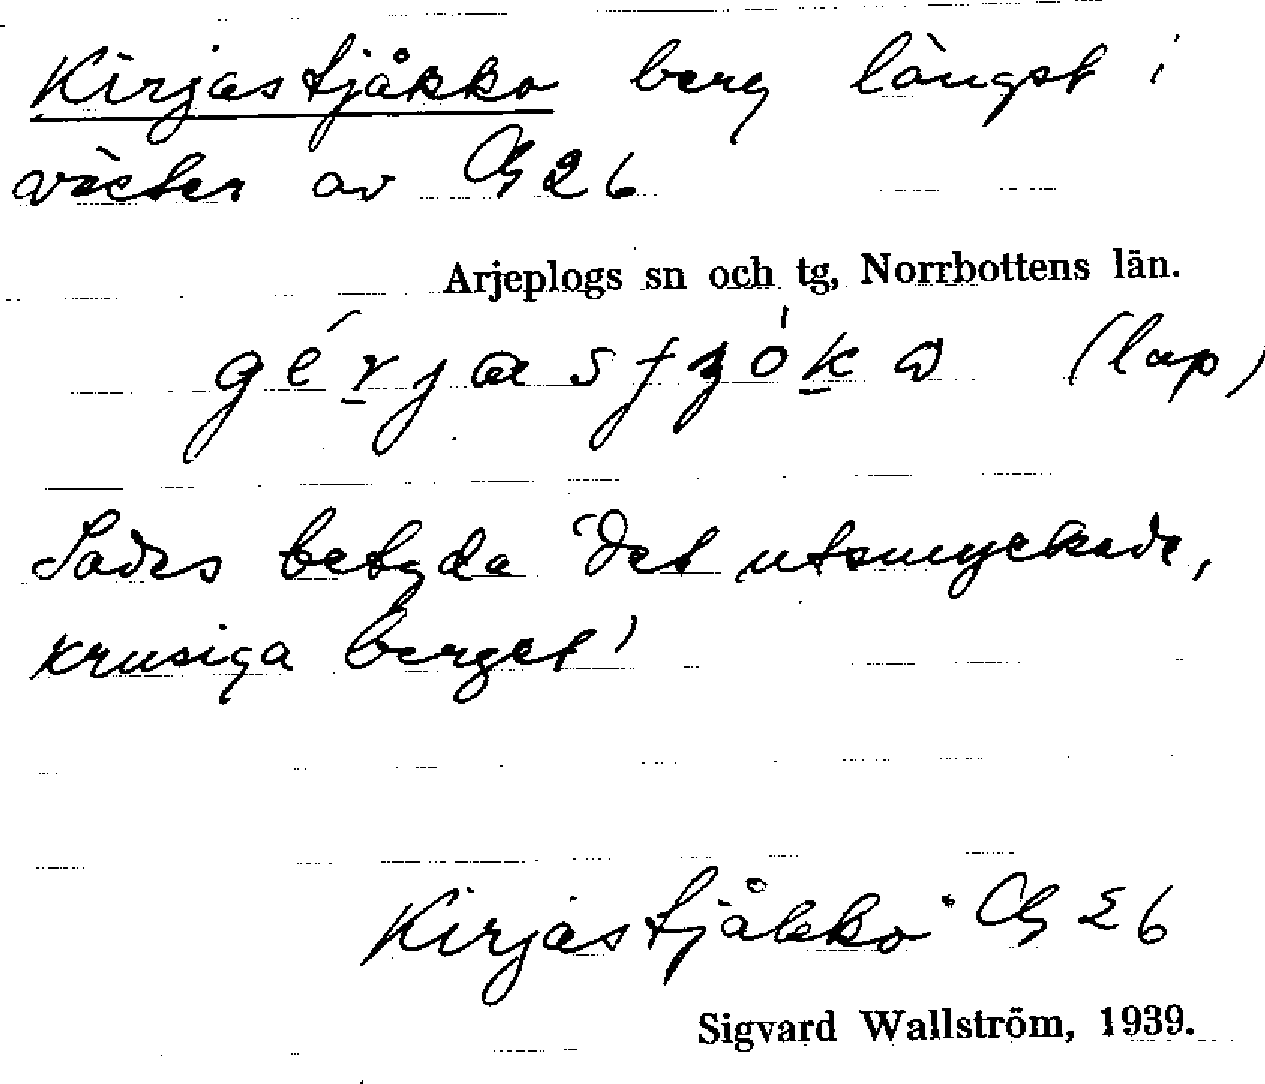 Kirjastjåkko berg längst i
väster av Ch 26
Arjeplogs sn och tg, Norrbottens län.
(lap)
Sades betyda 'det utsmyckade,
krusiga berget'
Kirjastjåkko Ch 26
Sigvard Wallström, 1939.